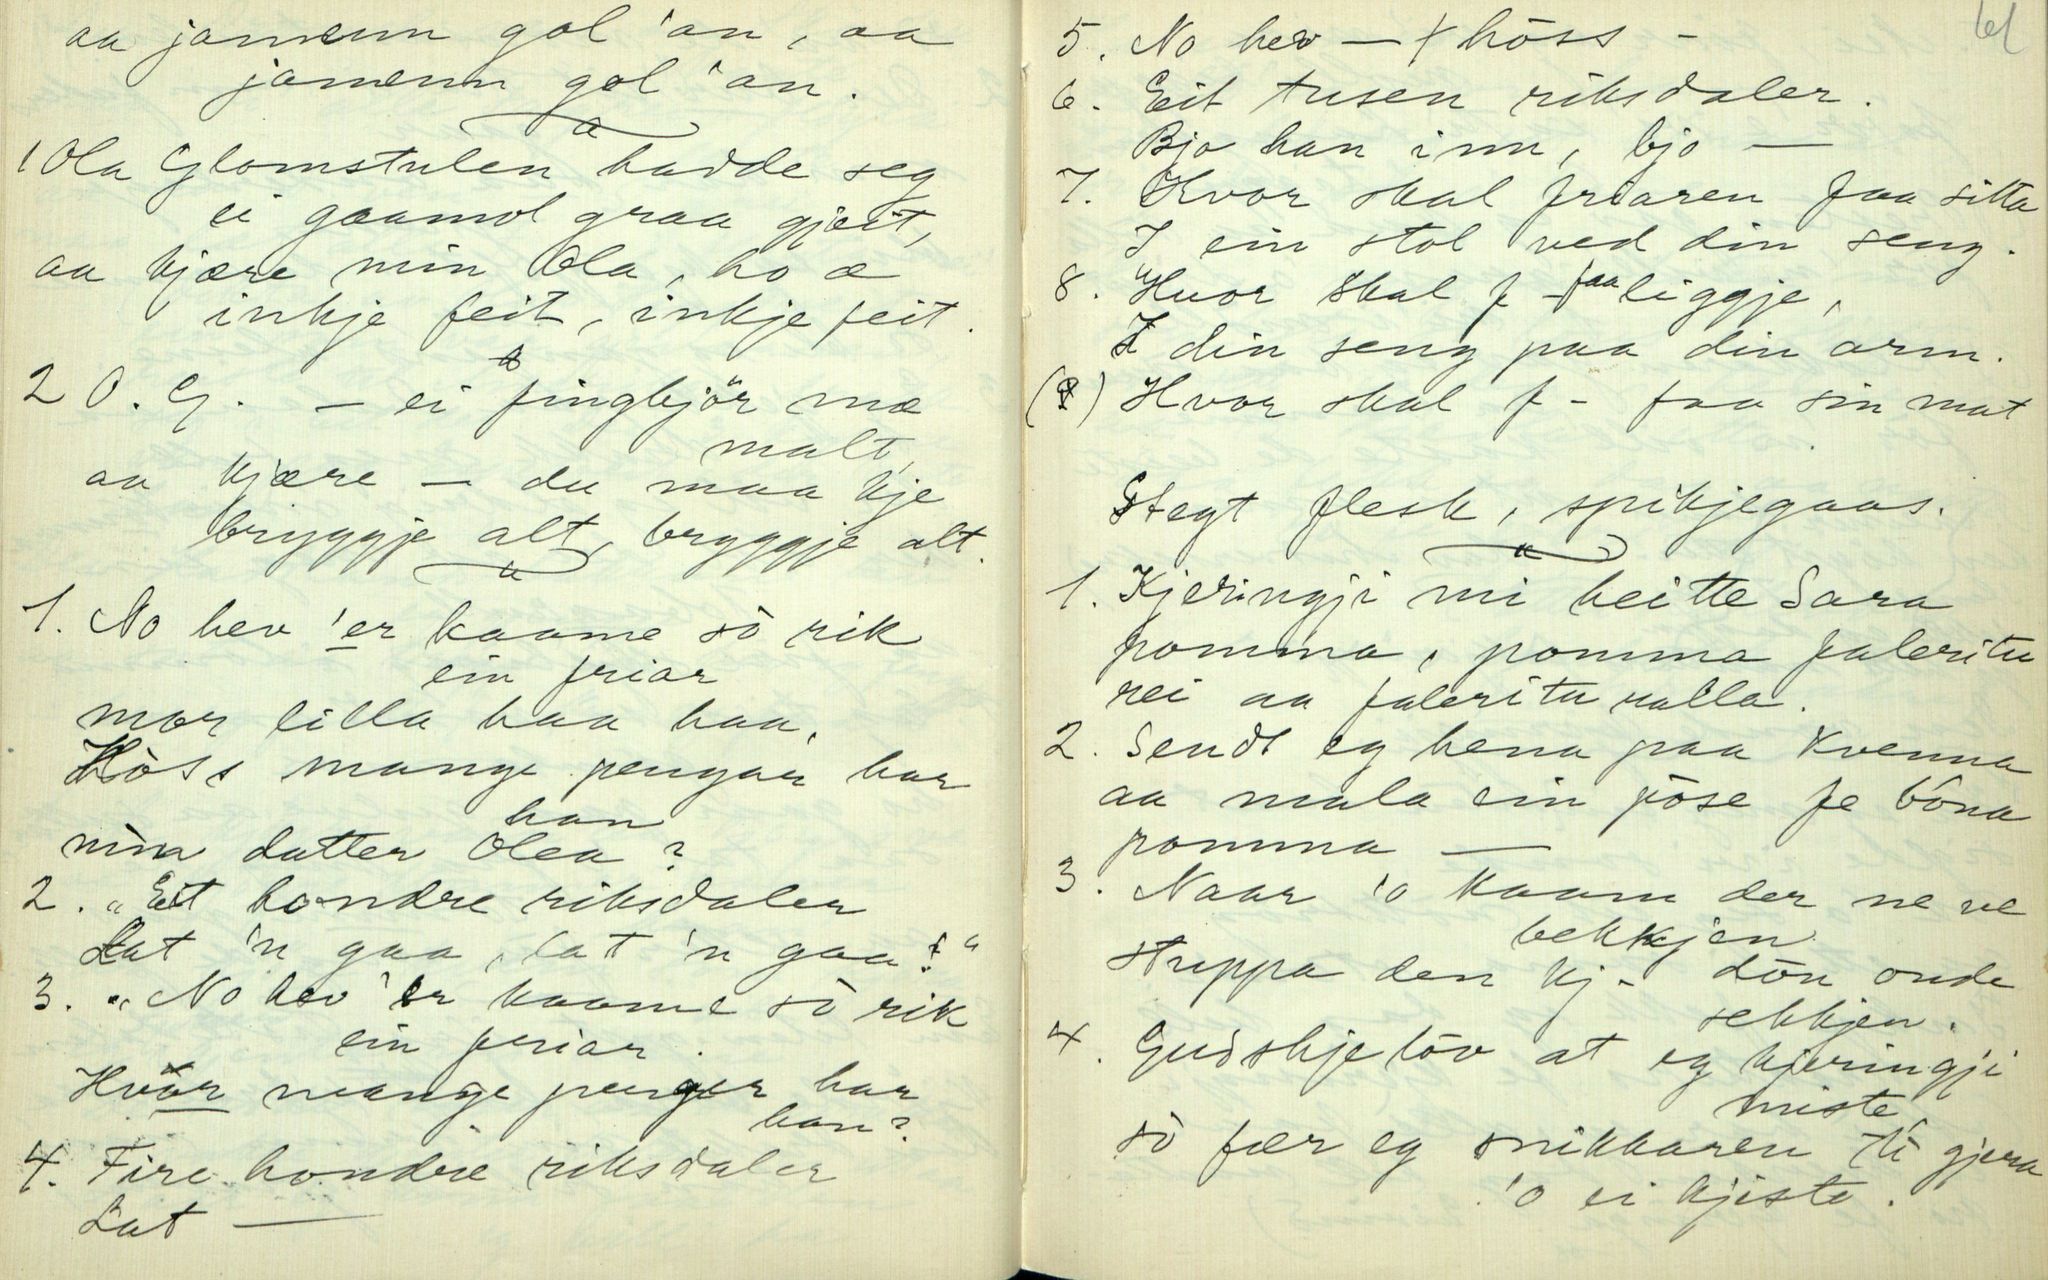 aa jamenn gol 'an, aa
jamenn gol 'an.
1 Ola Glomstulen hadde seg
ei gaamol graa gjeit,
aa kjære min Ola, ho æ
inkje feit, inkje feit.
2 O. G. — ei fingbjör mæ
malt,
aa kjære — du maa kje
bryggje alt, bryggje alt.
1. No hev 'er kaame sò rik
ein friar
mor lilla haa haa,
Hòss mange pengar har
han
min datter Olea?
2. „Eit hondre riksdaler
Lat 'n gaa, lat 'n gaa!"
3. „No hev 'er kaame sò rik
ein friar.
Hvor mange penger har
han?
4. Fire hondre riksdaler
Lat —
61
5. No hev — + hòss —
6. Eit tusen riksdaler.
Bjo han inn, bjo —
7. Hvor skal friaren faa sitta
I ein stol ved din seng.
8. Hvor skal f — faa liggje,
I din seng paa din arm.
Hvor skal f — faa sin mat
Stegt flesk, spikjegaas.
1. Kjeringji mi heitte Sara
pomma, pomma faleritu
rei aa faleritu ralla.
2. Sendt eg hena paa kvenna
aa mala ein pòse fe bòna
pomma —
3. Naar 'o kaam der ne ve
bekkjen
stuppa den kj — dòn onde
sekkjen.
4. Gudskjelòv at eg kjeringji
miste,
sò fær eg snikkaren ti gjera
'o ei kjiste.